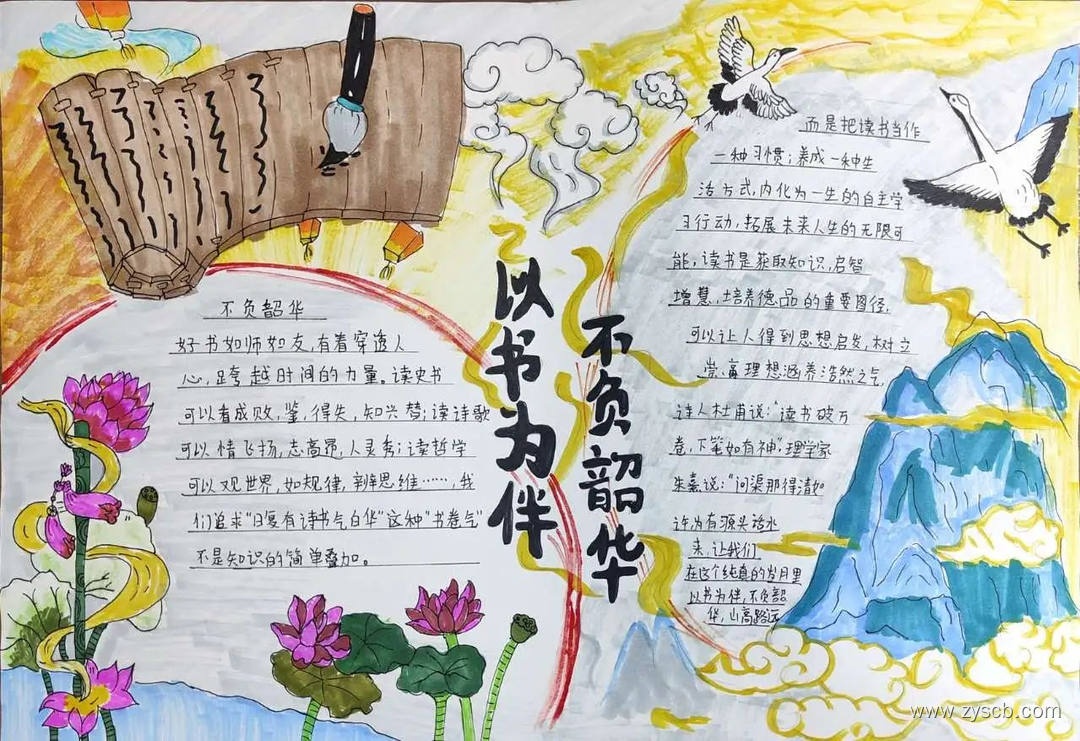 以书为伴
不负韶华
不负韶华
好书如师如友,有着穿透人
心,跨越时间的力量。读史书
可以看成败,鉴,得失,知兴替;读诗歌
可以情飞扬,志高昂,人灵秀;读哲学
可以观世界,如规律,辨思维……,我
们追求"腹有诗书气自华"这种"书卷气"
不是知识的简单叠加。
而是把读书当作
一种习惯;养成一种生
活方式,内化为一生的自主学
习行动,拓展未来人生的无限可
能,读书是获取知识,启智
增慧,培养德品的重要图径,
可以让人得到思想启发,树立
崇高理想涵养浩然之气,
诗人杜甫说:"读书破万
卷,下笔如有神",理学家
朱熹说:"问渠那得清如
许为有源头活水
来,让我们
在这个纯真的岁月里
以书为伴,不负韶
华,山高路远
www.zyscb.com